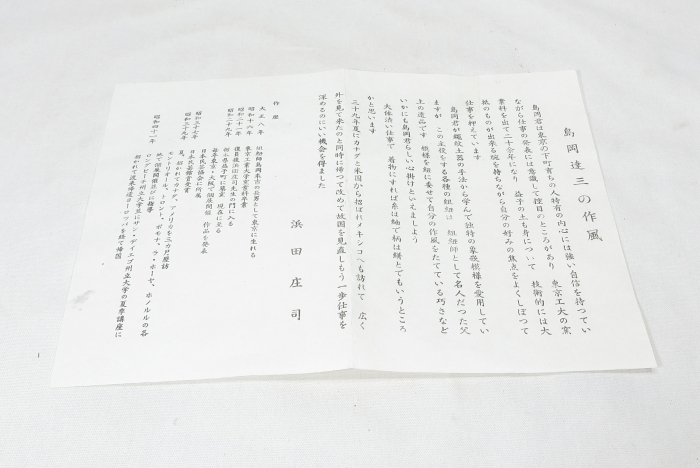 島岡達三の作風
島岡君は東京の下町育ちの人特有の内心には強い自信を持つてい
ながら仕事の発表には意識して控目のところがあり 東京工大の窯
業科を出て二十余年になり 益子の土も身について 技術的には大
抵のものが出来る腕を持ちながら自分の好みの焦点をよくしぼつて
仕事を押えています
島岡君が縄紋土器の手法から学んで独特の象嵌模様を愛用してい
ますが この主役をする各種の組紐は 組紐師として名人だつた父
上の遺品です 模様を紐に委せて自分の作風をたてている巧さなど
いかにも島岡君らしい心掛けといえましよう
大体渋い仕事で 着物にすれば糸は紬で柄は絣とでもいうところ
かと思います
三十九年夏にカナダと米国から招ばれメキシコへも訪れて 広く
外を見て来たのと同時に帰つて改めて故国を見直しもう一歩仕事を
深めるのにいい機会を得ました
浜田庄司
作歴
大正八年 組紐師島岡米吉の長男として東京に生れる
昭和十六年 東京工業大学窯業科卒業
昭和二十一年 復員後浜田庄司先生の門に入る
昭和二十九年 栃木県益子町に築窯 現在に至る
毎年東京・大阪で個展開催 作品を発表
日本民芸協会に所属
昭和三十七年 日本民芸館賞受賞
昭和三十九年 夏、招かれてカナダ、アメリカを三ヵ月歴訪
モントリオール、トロント、ボモナ、ラ・ホーヤ、ホノルルの各
地で個展開催並びに指導
昭和四十一年 ロングビーチ州立大学並にサン・ディエゴ州立大学の夏季講座に
招かれて渡米帰途ヨーロッパを経て帰国